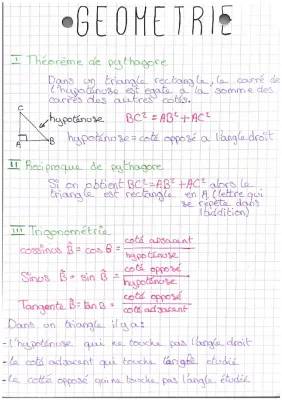 GEOMETRIE
I Théorème de pythagore
Dans un triangle rectangle, le carré de
l'hypoténuse est égale à la somme des
carrés des autres cotés.
C
hypoténuse
BC² = AB² + AC²
A
B
hypoténuse = coté opposé à l'angle droit
II Réciproque de pythagore
Si on obtient BC² = AB² + AC² alors le
triangle est rectangle en A (lettre qui
se répète dans
l'addition)
III Trigonométrie
cossinus B̂ = cos B = coté adjacent / hypoténuse
Sinus B̂ = sin B̂ = coté opposé / hypoténuse
Tangente B̂ = tan B = coté opposé / coté adjacent
Dans un triangle il y a:
- l'hypoténuse qui ne touche pas l'angle droit
- le coté adjacent qui touche l'angle étudié
- le cotté opposé qui ne touche pas l'angle étudié